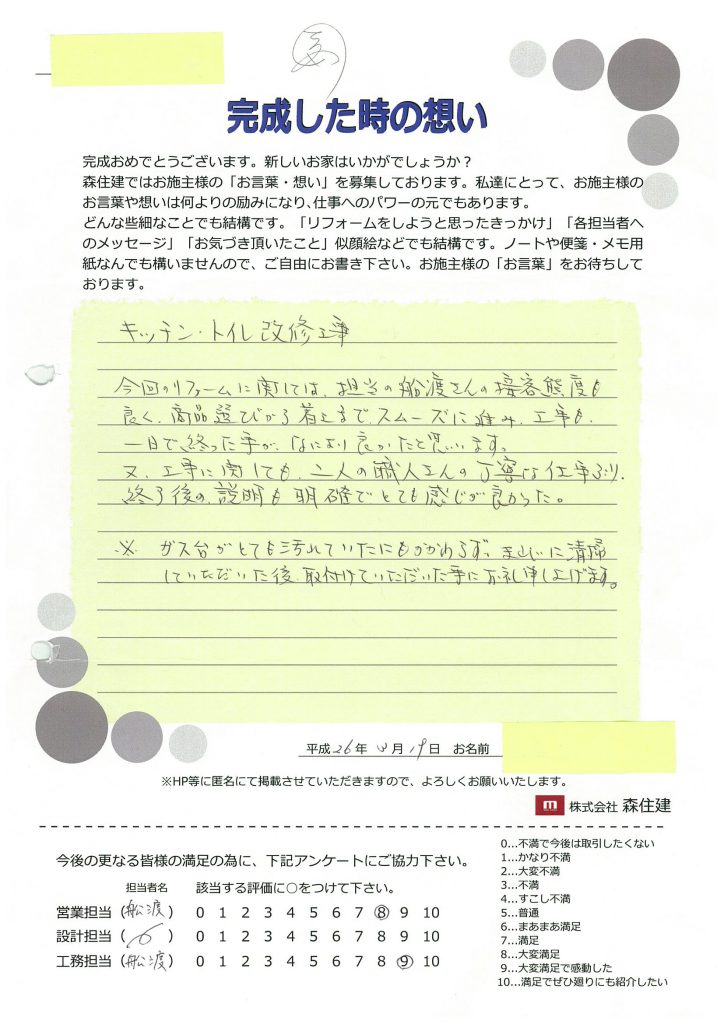 完成した時の想い
完成おめでとうございます。新しいお家はいかがでしょうか?
森住建ではお施主様の「お言葉・想い」を募集しております。私達にとって、お施主様の
お言葉や想いは何よりの励みになり、仕事へのパワーの元でもあります。
どんな些細なことでも結構です。「リフォームをしようと思ったきっかけ」「各担当者へ
のメッセージ」「お気づき頂いたこと」似顔絵などでも結構です。ノートや便箋・メモ用
紙なんでも構いませんので、ご自由にお書き下さい。お施主様の「お言葉」をお待ちして
おります。
キッチン・トイレ改修工事
今回のリフォームに関しては、担当の船渡さんの接客態度も
良く、商品選びから着工まで、スムーズに進み、工事も、
一日で終った事が、なにより良かったと思います。
又、工事に関しても、二人の職人さんの丁寧な仕事ぶり、
終了後の説明も明確でとても感じが良かった。
※ ガス台がとても汚れていたにもかかわらず、きれいに清掃
していただいた後、取付けていただいた事にお礼申し上げます。
平成26年 月19日 お名前
※HP等に匿名にて掲載させていただきますので、よろしくお願いいたします。
m 株式会社 森住建
今後の更なる皆様の満足の為に、下記アンケートにご協力下さい。
担当者名 該当する評価に○をつけて下さい。
営業担当(船渡) 0 1 2 3 4 5 6 7 8 9 10
設計担当( ) 0 1 2 3 4 5 6 7 8 9 10
工務担当(船渡) 0 1 2 3 4 5 6 7 8 9 10
0…不満で今後は取引したくない
1…かなり不満
2…大変不満
3…不満
4…すこし不満
5…普通
6…まあまあ満足
7…満足
8…大変満足
9…大変満足で感動した
10…満足でぜひ廻りにも紹介したい